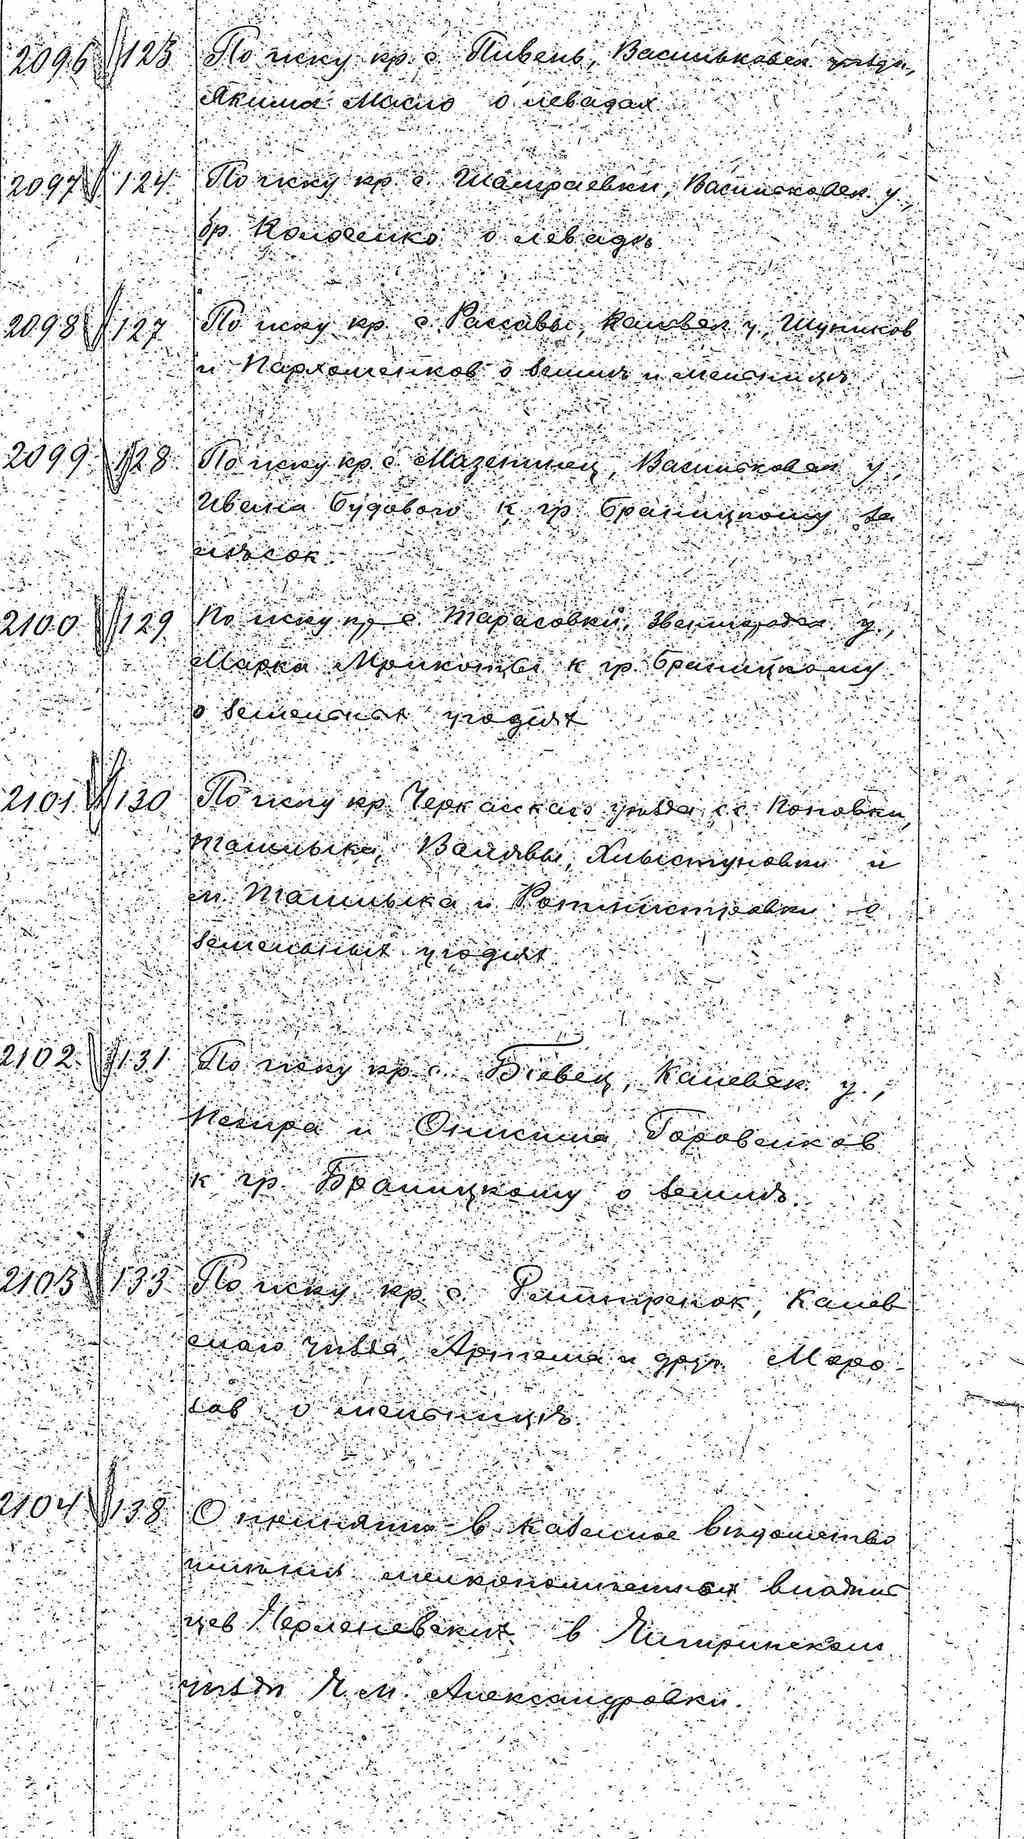 2096 123 По иску кр. с. Пивень, Васильковск. уезда,
Якима Масло о левадах
2097 124 По иску кр. с. Шамраевки, Васильковск. у.,
бр. Колосенко о левадѣ
2098 127 По иску кр. с. Рассавы, Каневск. у., Шупиков
и Пархоменков о землѣ и мельницѣ
2099 128 По иску кр. с. Мазепинец, Васильковск. у.,
Ивана Будового к гр. Браницкому за
пѣсок.
2100 129 По иску кр. с. Тарасовки, Звенигородск. у.,
Марка к гр. Браницкому
о земельных угодиях
2101 130 По иску кр. Черкасскаго уѣзда, с.с. Поповки,
Ташлыка, Валявы, Хлыстуновки и
м. Ташлыка и Ротмистровки о
земельных угодиях.
2102 131 По иску кр. с. Біевец, Каневск. у.,
Петра и Онисима Горовенков
к гр. Браницкому о землѣ.
2103 133 По иску кр. с. Канев
скаго уѣзда, Артема и друг. Моро-
зов о мельницѣ.
2104 138 О принятии в казенное вѣдомство
имѣния мелкопоместных владѣль
цев в Чигиринском
уѣздѣ Ч. м. Александровки.